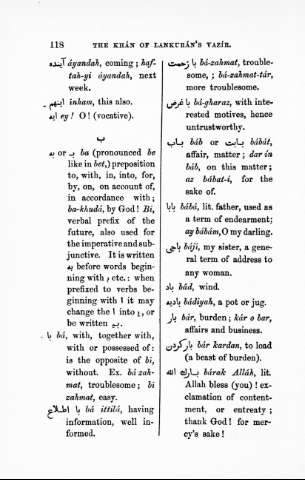 118 THE KHÁN OF LANKURÁN'S VAZÍR.
آینده áyandah, coming; haf-
tah-yi áyandah, next
week.
اینهم ínham, this also.
ای ey! O! (vocative).
ب
ب or به ba (pronounced be
like in bet,) preposition
to, with, in, into, for,
by, on, on account of,
in accordance with;
ba-khudá, by God! Bi,
verbal prefix of the
future, also used for
the imperative and sub-
junctive. It is written
به before words begin-
ning with ; etc.: when
prefixed to verbs be-
ginning with ا it may
change the ا into ی, or
be written بی.
با bá, with, together with,
with or possessed of:
is the opposite of bí,
without. Ex. bá zah-
mat, troublesome; bí
zahmat, easy.
با اطلاع bá ittilá, having
information, well in-
formed.
با زحمت bá-zahmat, trouble-
some, ; bá-zahmat-tár,
more troublesome.
با غرض bá-gharaz, with inte-
rested motives, hence
untrustworthy.
باب báb or بابت bábát,
affair, matter; dar ín
báb, on this matter;
az bábat-i, for the
sake of.
بابا bábá, lit. father, used as
a term of endearment;
ay bábám, O my darling.
باجی bájí, my sister, a gene-
ral term of address to
any woman.
باد bád, wind.
بادیه bádiyah, a pot or jug.
بار bár, burden; kár o bar,
affairs and business.
بار کردن bár kardan, to load
(a beast of burden).
بارك الله bárak Alláh, lit.
Allah bless (you)! ex-
clamation of content-
ment, or entreaty;
thank God! for mer-
cy's sake!